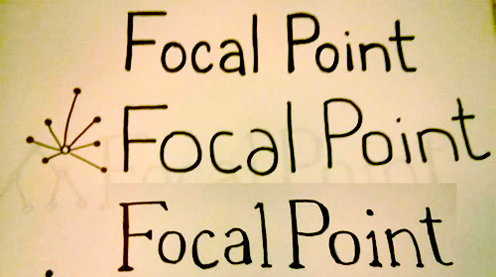 Focal Point
Focal Point
Focal Point